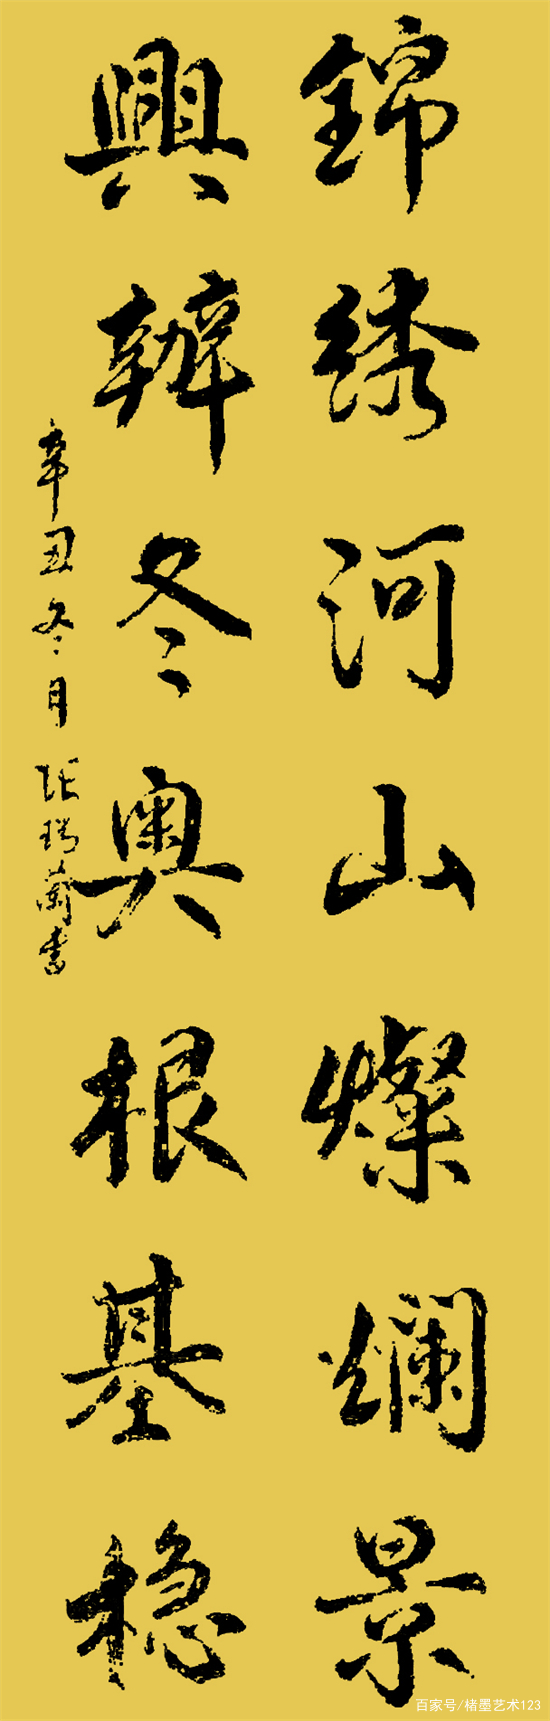 錦绣河山燦斕景
興辦冬奥根基稳
辛丑冬月张瑞蘭书
百家号/楮墨艺术123